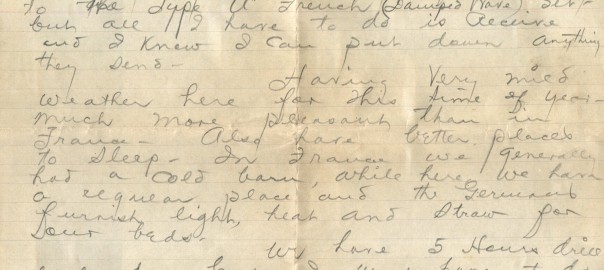 to the Type A French (Damped Wave) Set-
but all I have to do is Receive
and I Know I can put down anything
they send-
Having Very mild
weather here for this time of year-
much more pleasant than in
France- Also have better places
to Sleep- In France we generally
had a cold barn, while here we have
a regular place and the Germans
furnish light, heat and Straw for
our beds-
We have 5 Hours drill